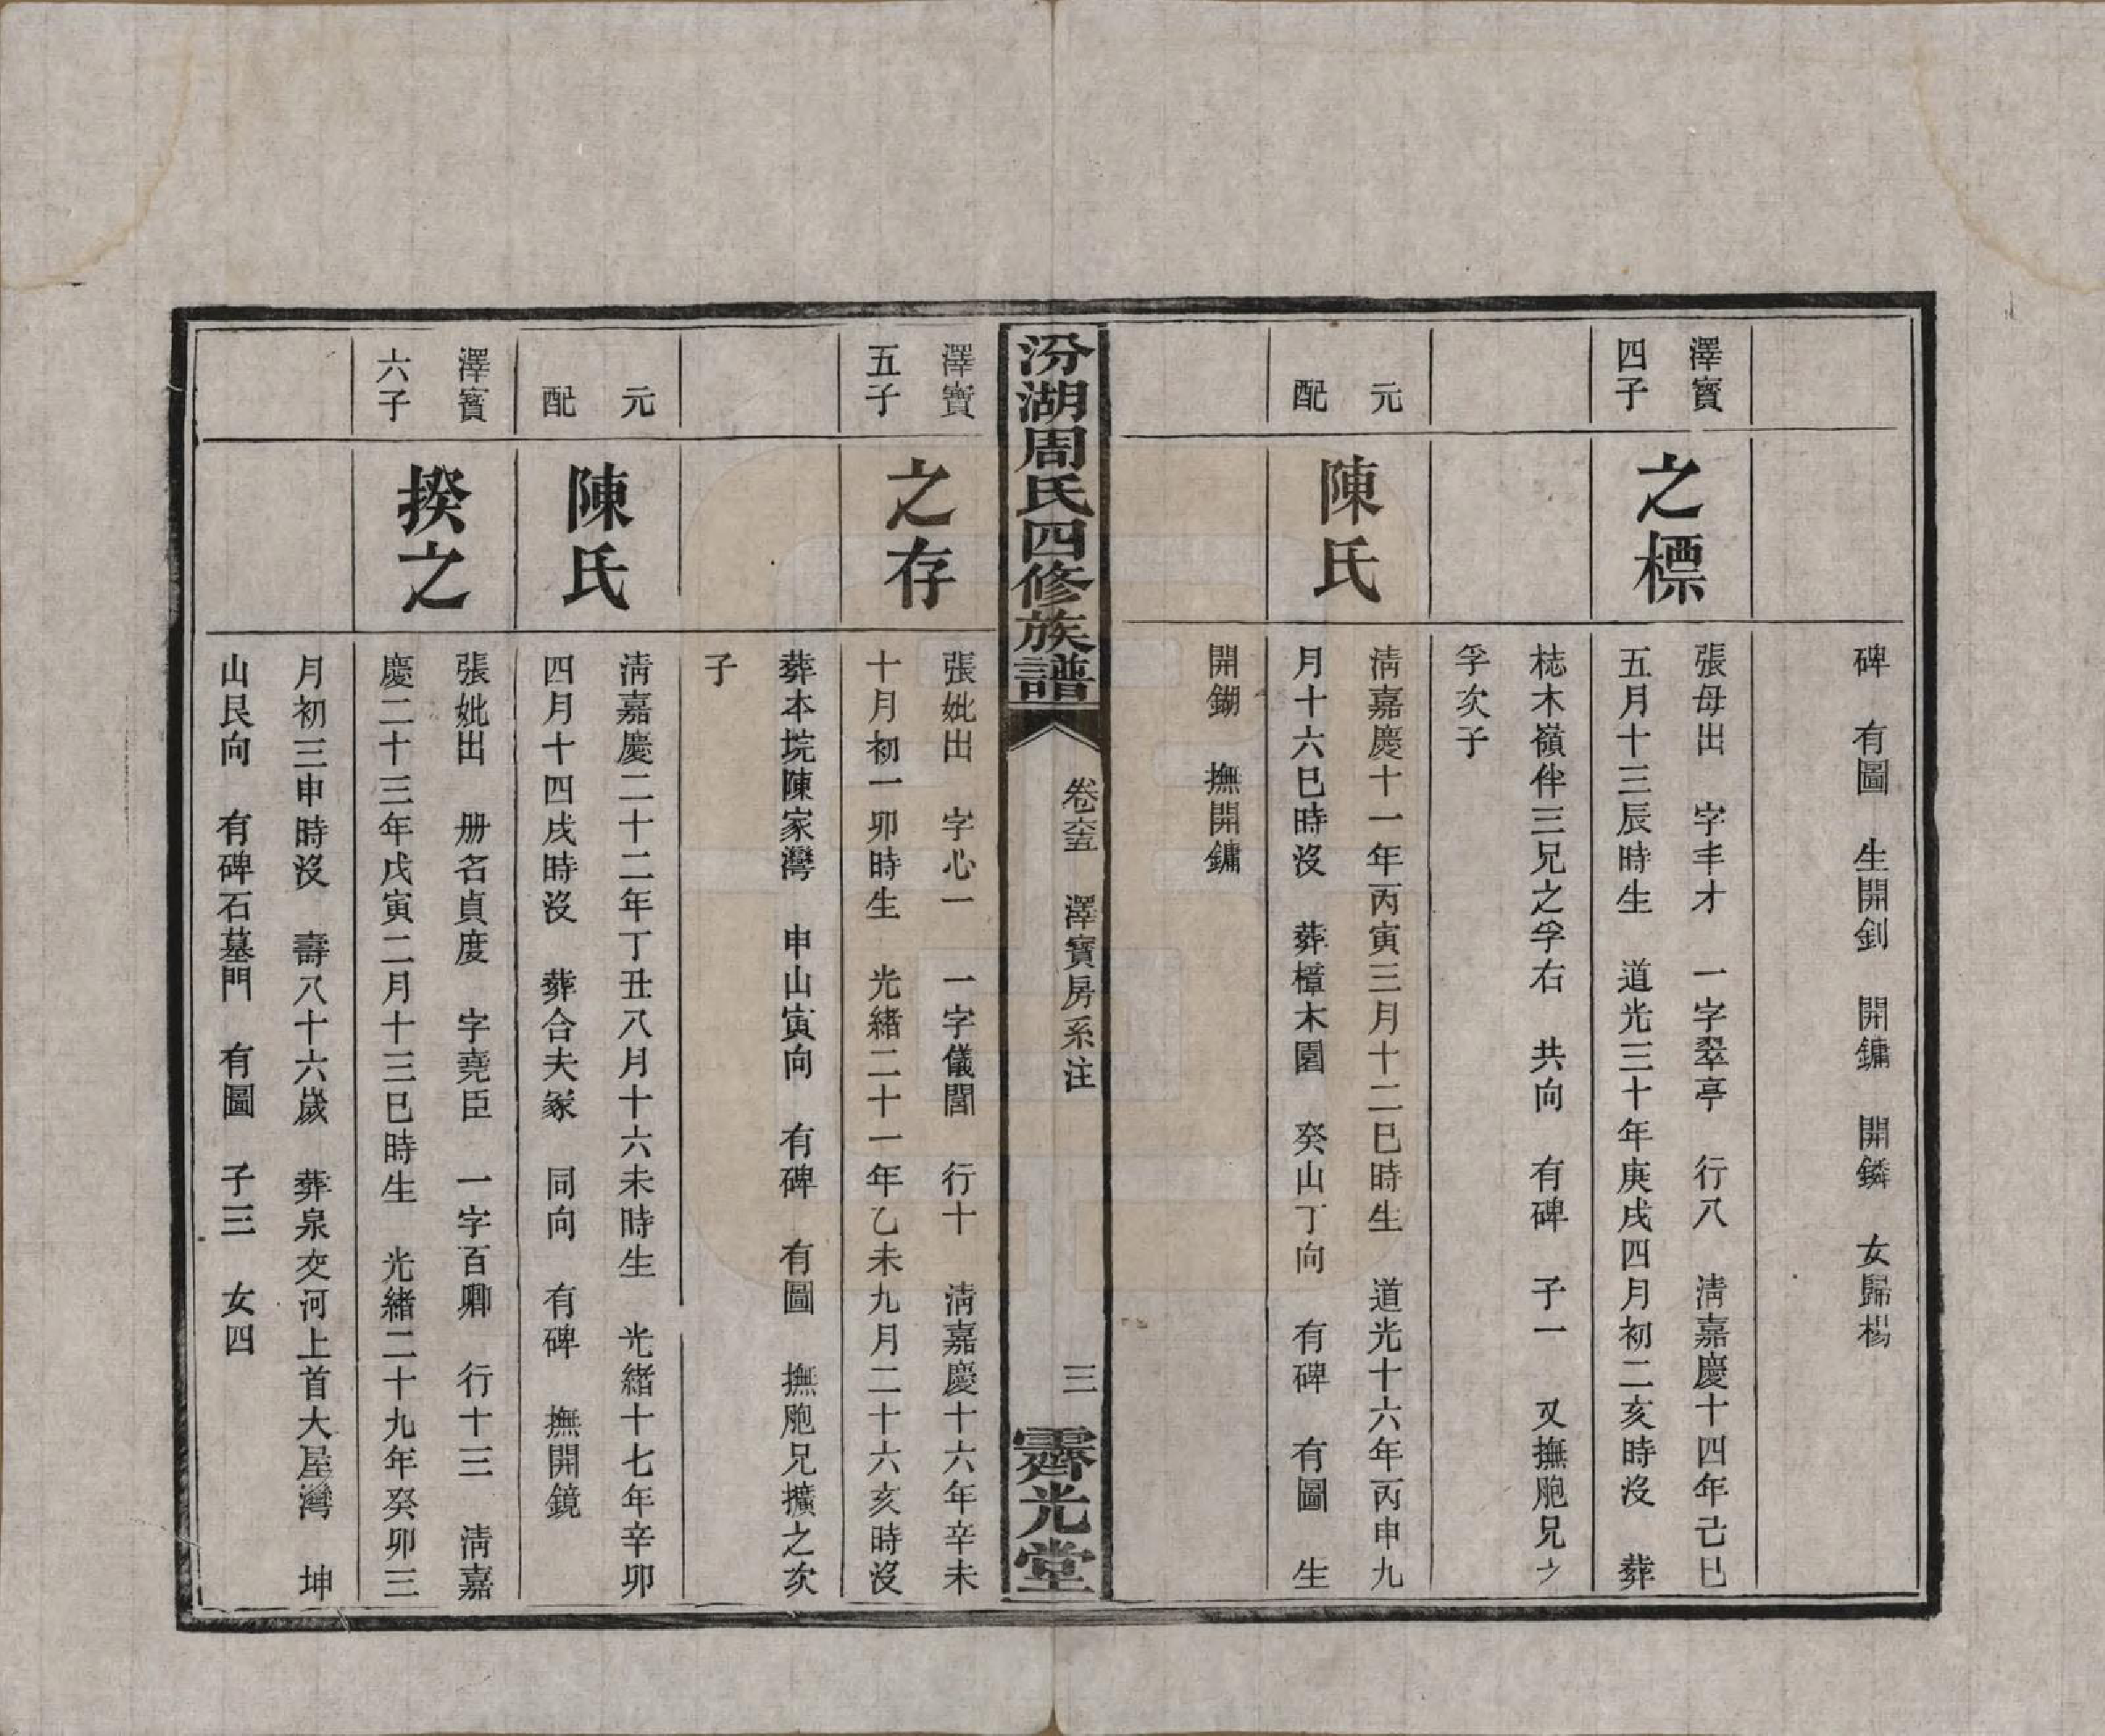 碑　有圖　生開釗　開鏞　開鏻　女歸楊
澤寶
四子
之標
張母出　字丰才　一字翠亭　行八　清嘉慶十四年己巳
五月十三辰時生　道光三十年庚戌四月初二亥時沒　葬
梽木嶺伴三兄之孚右　共向　有碑　子一　又撫胞兄之
孚次子
元
配
陳氏
清嘉慶十一年丙寅三月十二巳時生　道光十六年丙申九
月十六巳時沒　葬樟木園　癸山丁向　有碑　有圖　生
開鎙　撫開鏞
汾湖周氏四修族譜
卷六五　澤寶房系注
三
霽光堂
澤寶
五子
之存
張妣出　字心一　一字儀閣　行十　清嘉慶十六年辛未
十月初一卯時生　光緒二十一年乙未九月二十六亥時沒
葬本垸陳家灣　申山寅向　有碑　有圖　撫胞兄擴之次
子
元
配
陳氏
清嘉慶二十二年丁丑八月十六未時生　光緒十七年辛卯
四月十四戌時沒　葬合夫冢　同向　有碑　撫開鏡
澤寶
六子
揆之
張妣出　册名貞度　字堯臣　一字百卿　行十三　清嘉
慶二十三年戊寅二月十三巳時生　光緒二十九年癸卯三
月初三申時沒　壽八十六歲　葬泉交河上首大屋灣　坤
山艮向　有碑石墓門　有圖　子三　女四